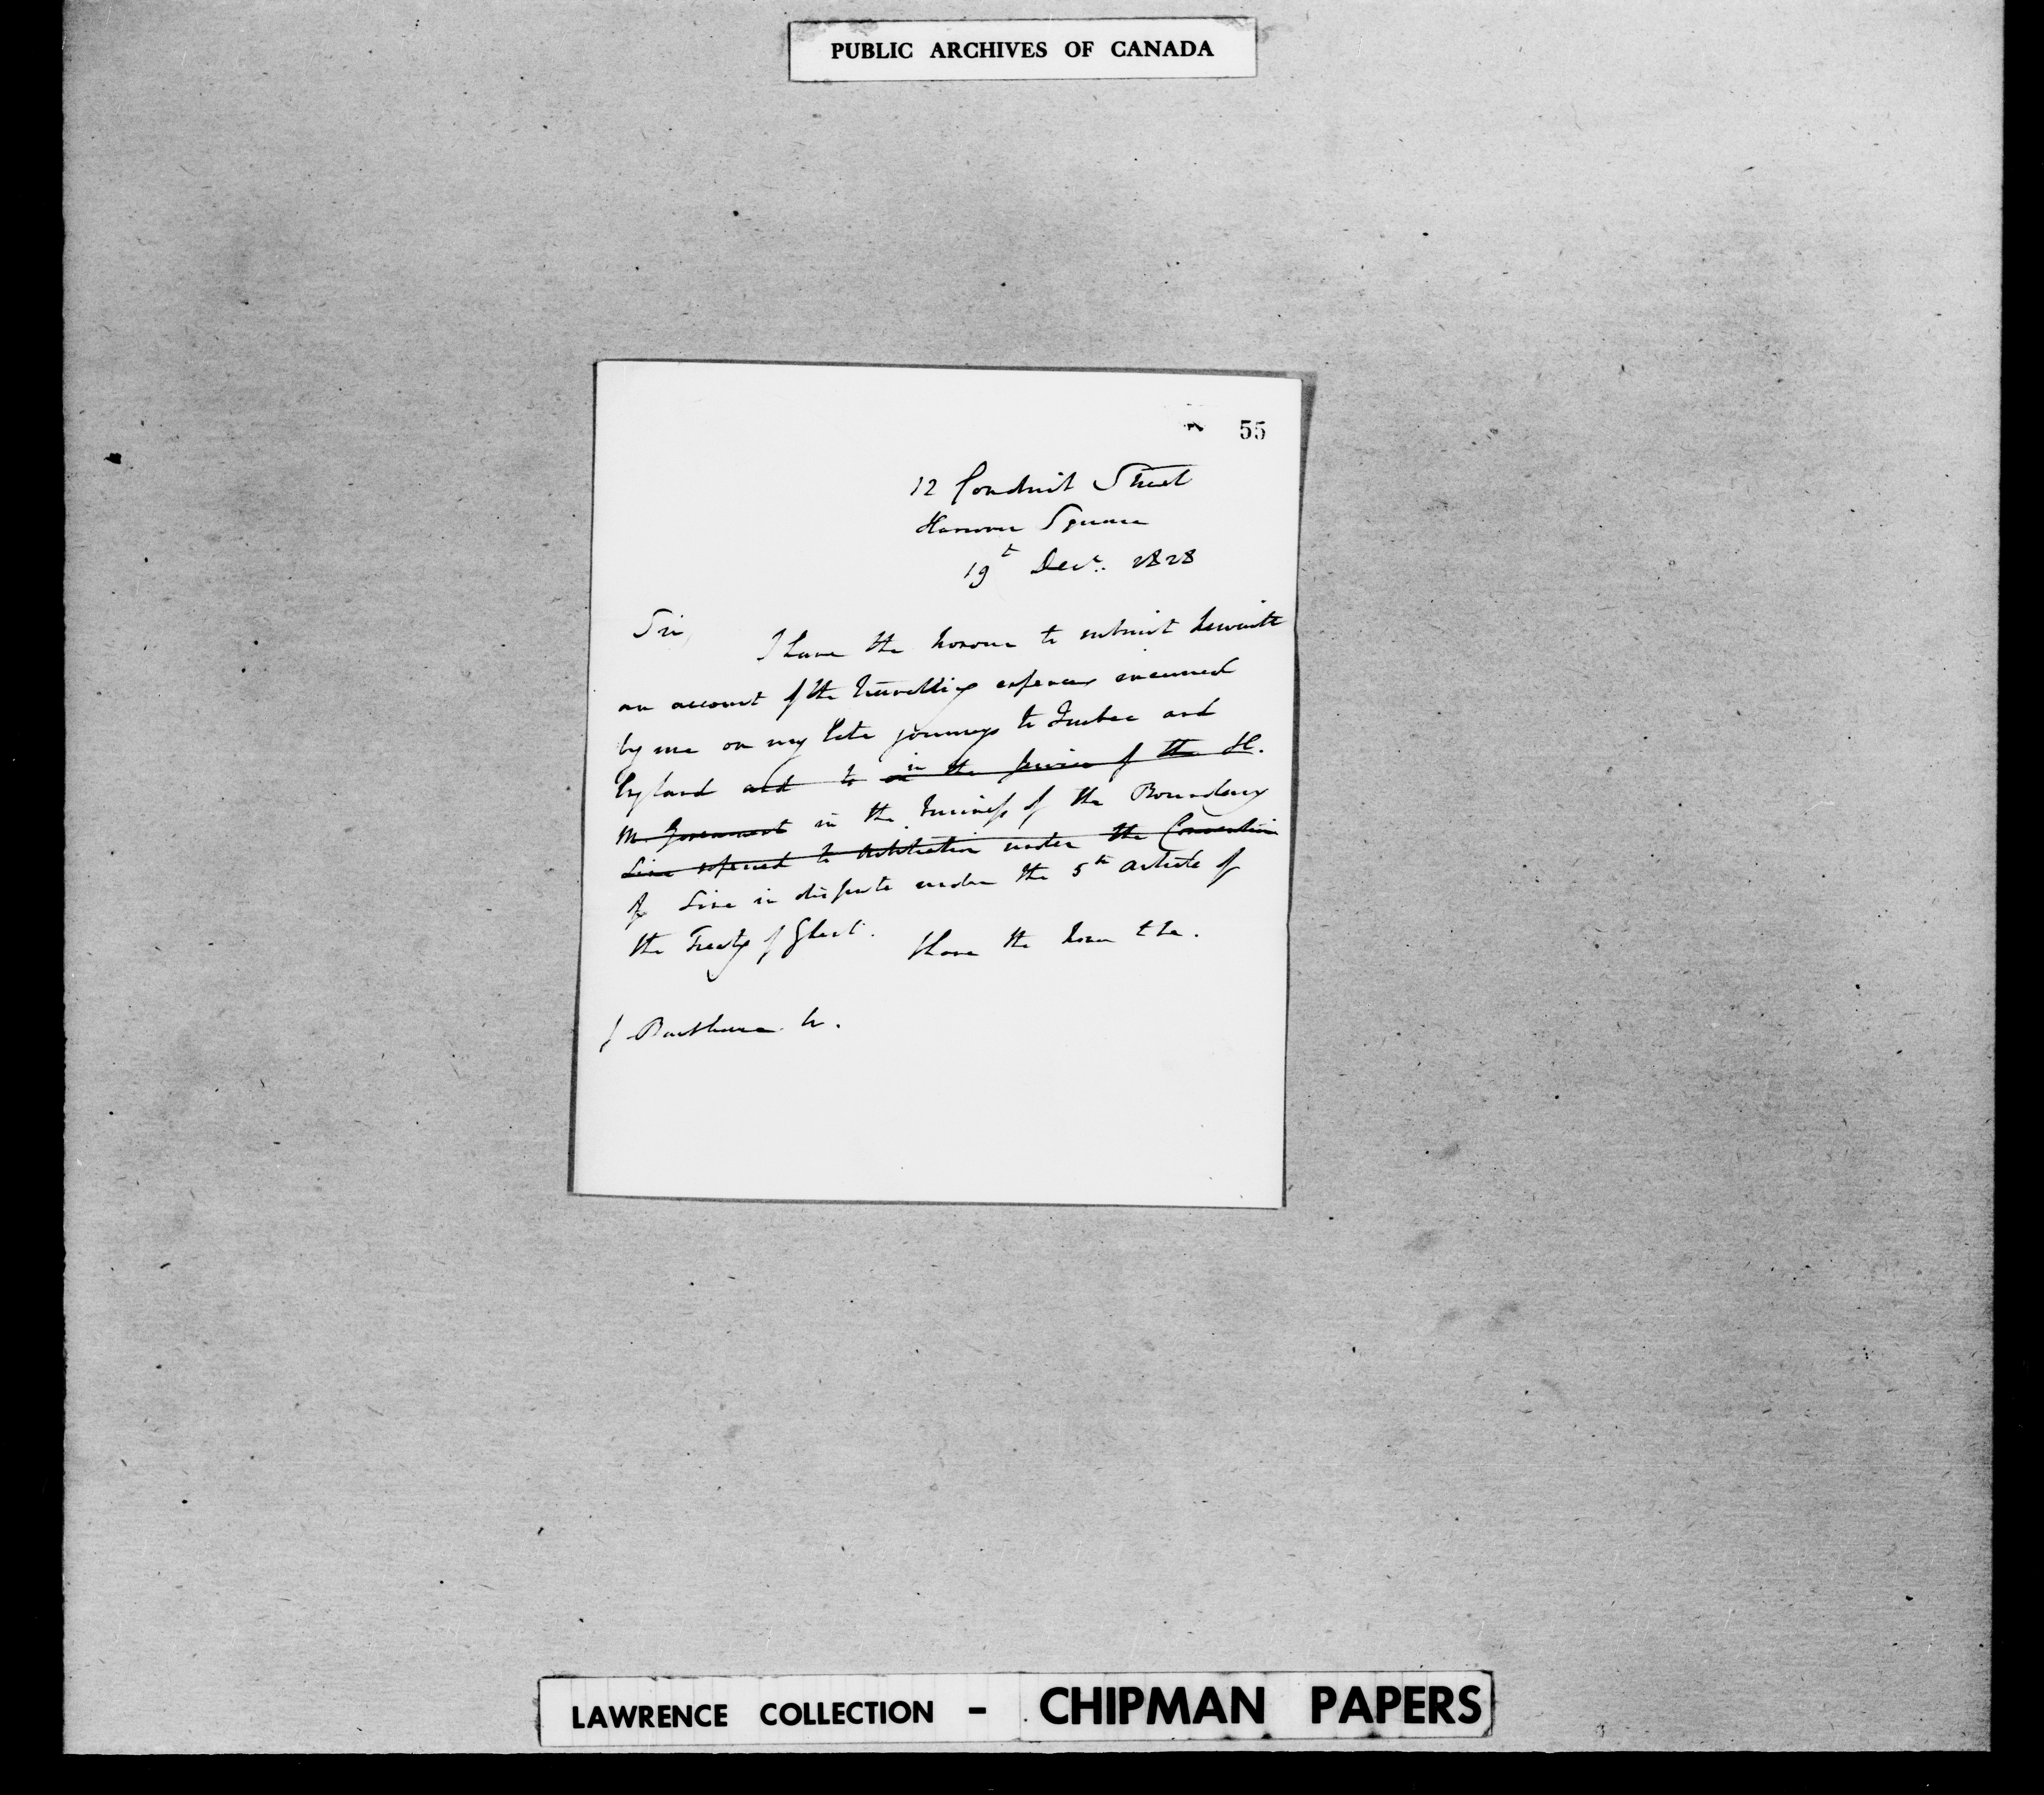 PUBLIC ARCHIVES OF CANADA
55
12 Conduit Street
Hanover Square
19t Decr. 1828
Sir,
I have the honour to submit herewith
an account of the travelling expences incurred
by me on my late journeys to Quebec and
England and to in the service of the H.
M. Government in the business of the Boundary
Line referred to Arbitration under the Convention
of Line in dispute under the 5th article of
the Treaty of Ghent.
I have the honr &c.
J Backhouse
LAWRENCE COLLECTION - CHIPMAN PAPERS